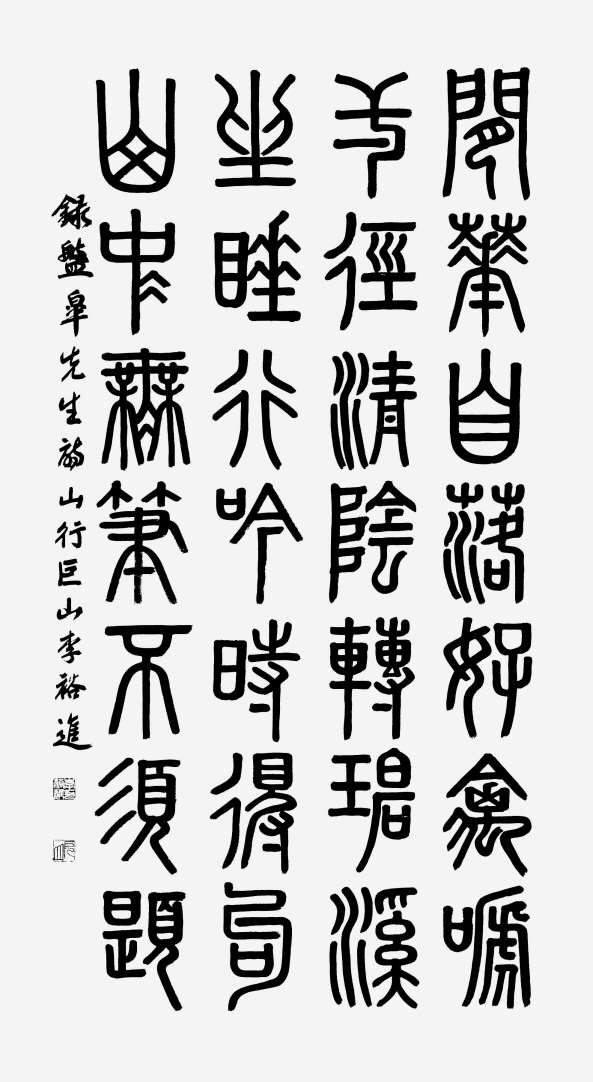 閒華自落好禽嗁
徑清陰轉碧溪
坐睡行吟時得句
山中無筆不須題
錄盤皐先生詩山行巨山李裕進